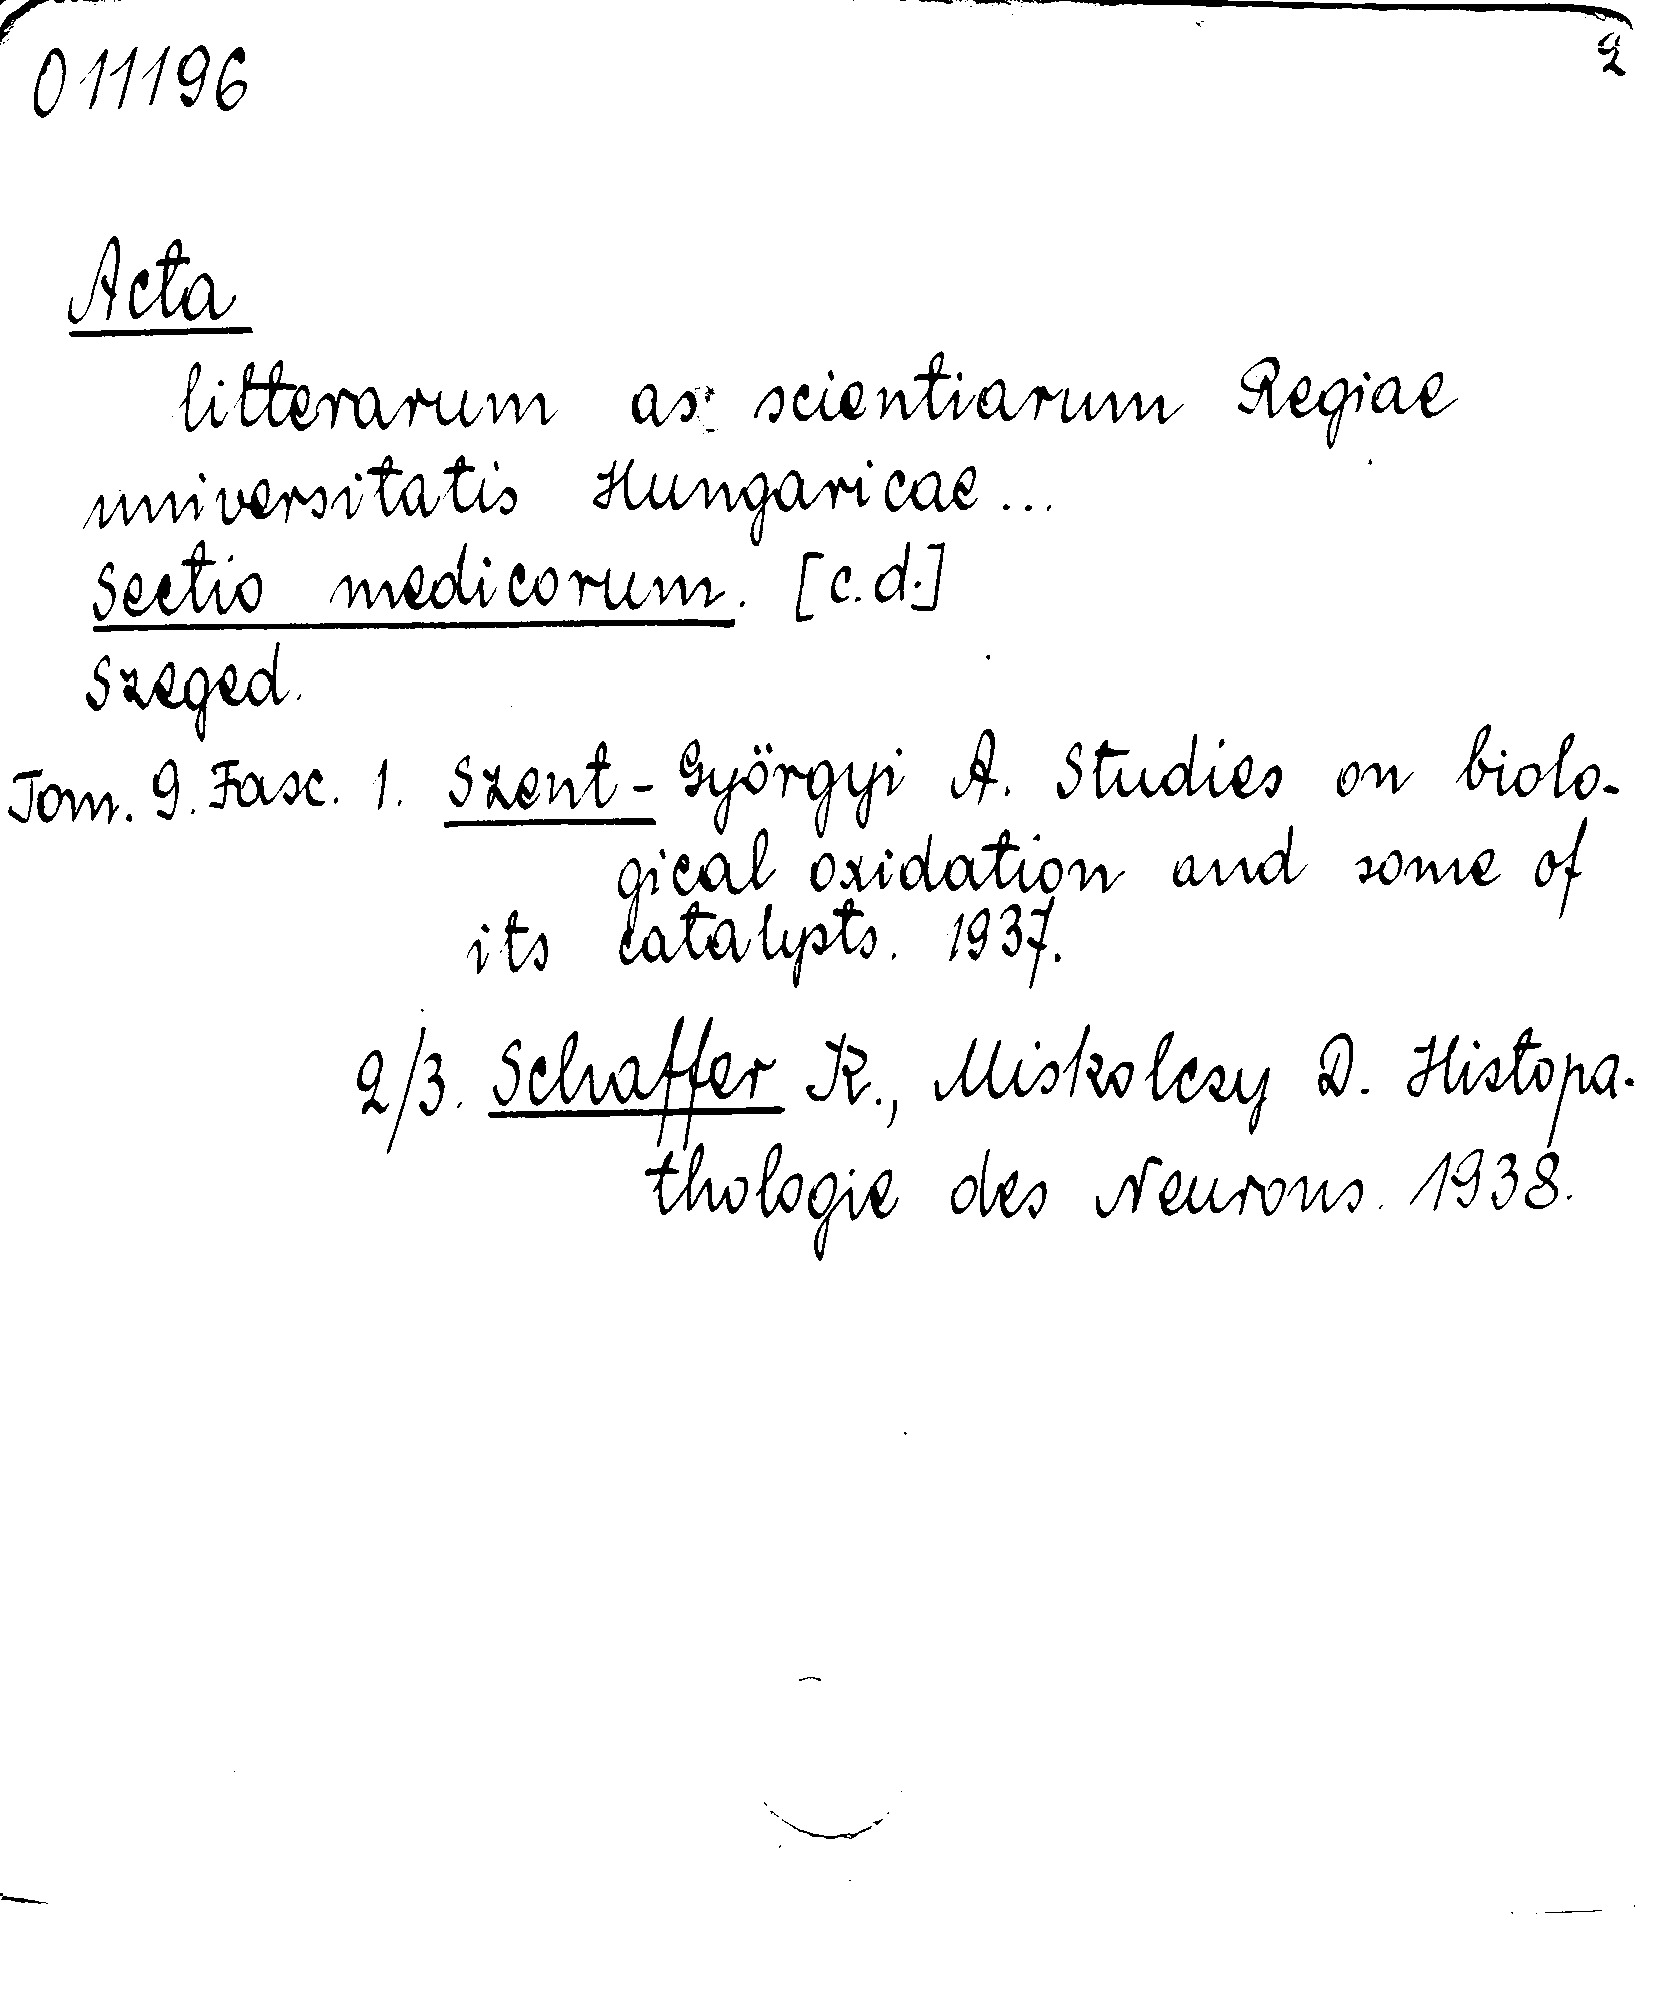 011196
2
Acta
litterarum as scientiarum Regiae
universitatis Hungaricae...
Sectio medicorum. [c.d.]
Szeged.
Tom. 9. Fasc. 1. Szent-Györgyi A. Studies on biolo-
gical oxidation and some of
its catalysts. 1937.
2/3. Schaffer K., Miskolczy D. Histopa-
thologie des Neurons. 1938.